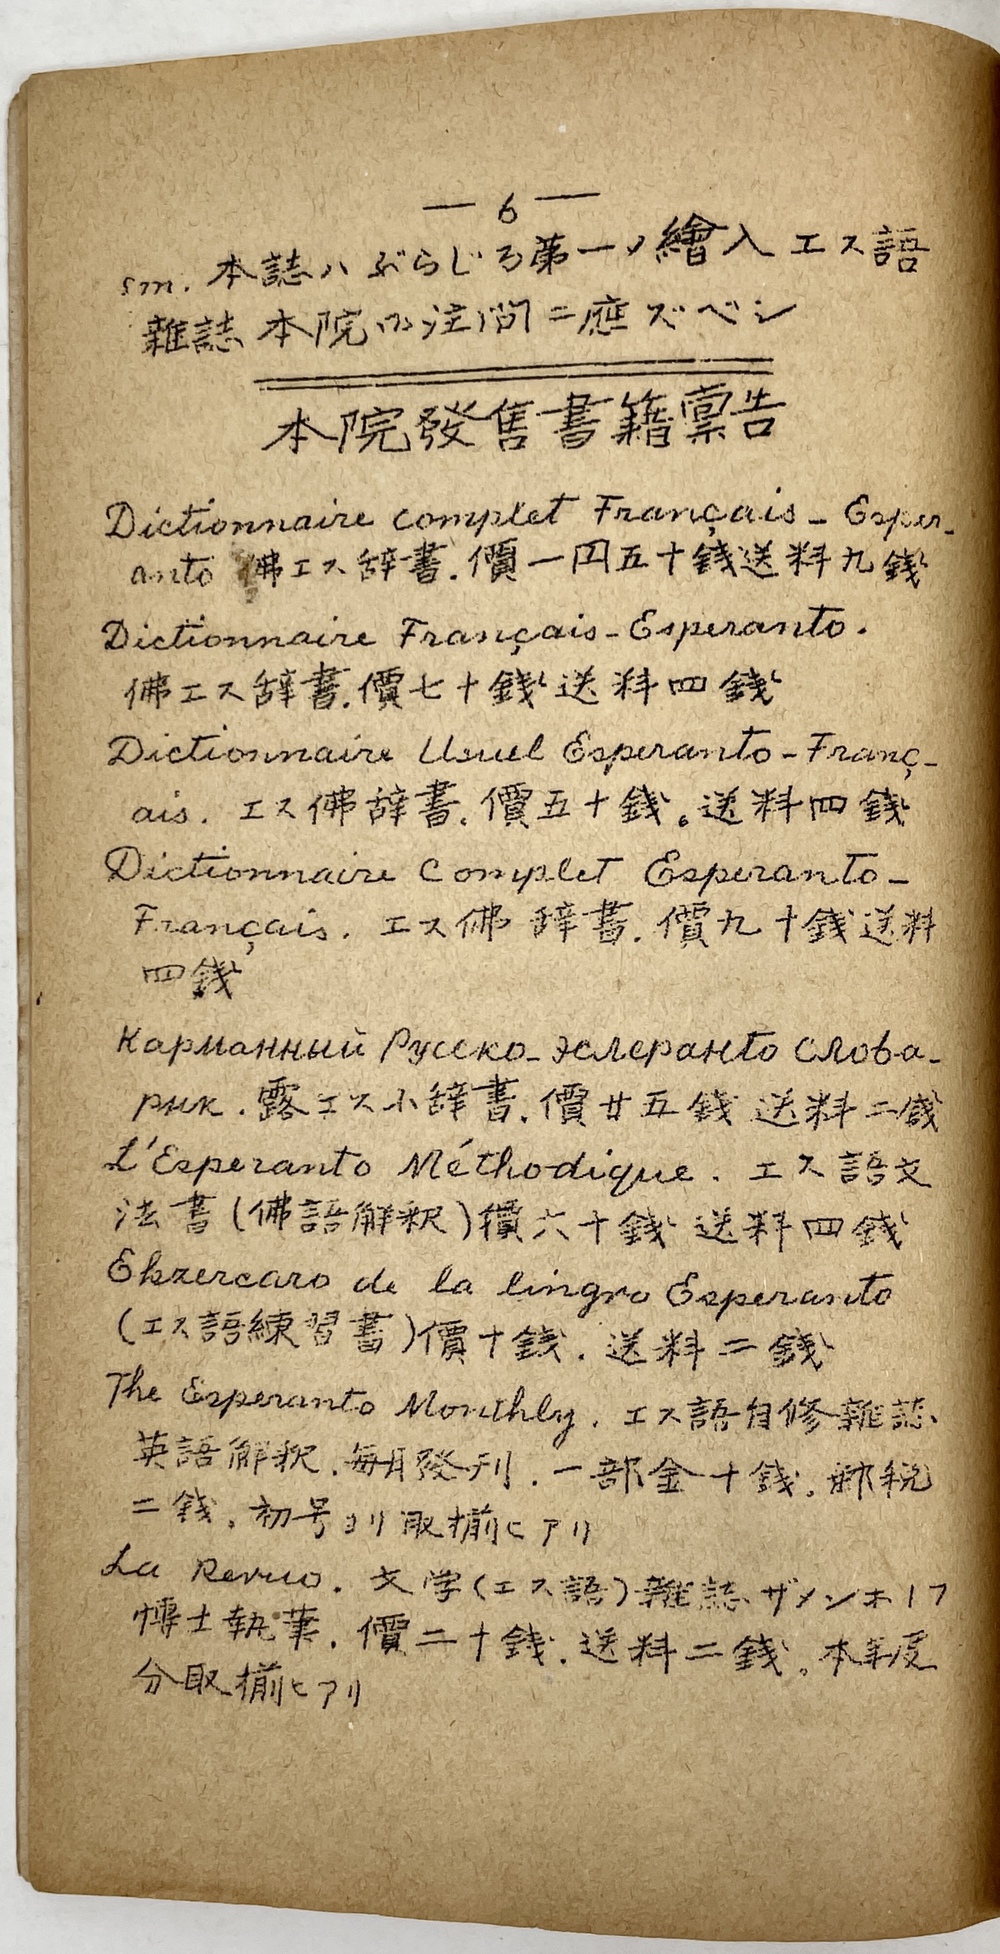 — 6 —
sm. 本誌ハぶらじろ第一ノ繪入エス語
雜誌 本院ハ注問ニ應ズベシ
本院發售書籍稟告
Dictionnaire complet Français - Esper-
anto 佛エス辞書. 價一円五十錢送料九錢
Dictionnaire Français-Esperanto.
佛エス辞書. 價七十錢送料四錢
Dictionnaire Usuel Esperanto-Franç-
ais. エス佛辞書. 價五十錢。送料四錢
Dictionnaire Complet Esperanto-
Français. エス佛辞書. 價九十錢送料
四錢
Карманный Русско-эсперанto слова-
рик. 露エス小辞書. 價廿五錢 送料二錢
L'Esperanto Méthodique. エス語文
法書(佛語解釈)價六十錢 送料四錢
Ekzercaro de la lingvo Esperanto
(エス語練習書)價十錢. 送料二錢
The Esperanto Monthly. エス語自修雜誌
英語解釈. 每月發刊. 一部金十錢. 郵税
二錢. 初号ヨリ取揃ヒアリ
La Revuo. 文学(エス語)雜誌 ザメンホーフ
博士執筆. 價二十錢. 送料二錢. 本年度
分取揃ヒアリ